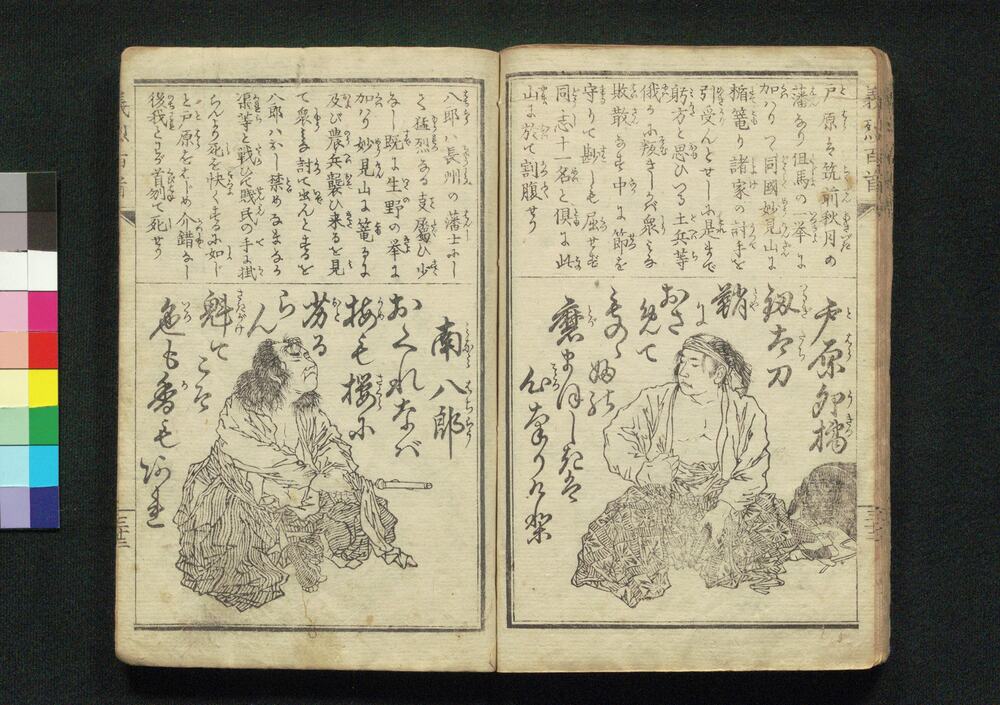 戸原ハ筑前秋月の
藩なり但馬の一挙に
加ハりて同國妙見山に
楯篭り諸家の討手を
引受んとせしに是まで
躬方と思ひつる土兵等
俄かに叛きしかバ衆みな
散なす中に節を
守りて尠しも屈せず
同志十一名と倶に此
山に於て割腹せり
戸原卯橘
釼太刀
鞘に
おさ
めて
ものゝ婦の
磨まほしきは
心なりけり
義烈百首
八郎ハ長州の藩士にし
て猛烈なる支属ひ少
なし既に生野の挙に
加ハり妙見山に篭るに
及び農兵襲ひ来るを見
て衆みな討て出んとするを
八郎ハおし禁めるまゝなる
渠等と戦ひて賎民の手に掛
らんより死を快くするに如じ
と戸原をはじめ介錯なし
後我とわが首刎て死せり
南八郎
おくれなバ
梅も桜に
劣る
らん
魁てこそ
色も香もあれ
義烈百首